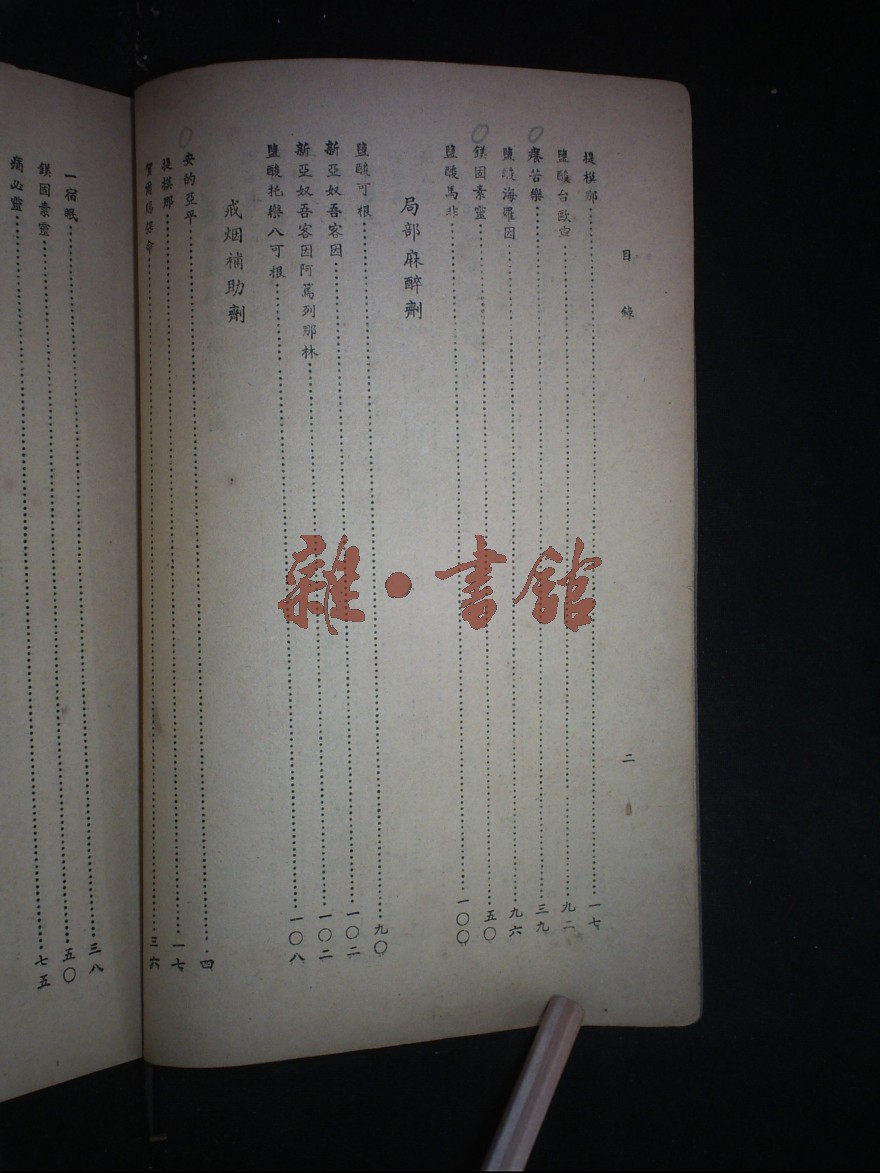 目錄
二
提模那……一七
鹽酸台歐寍……九二
癢苦樂……三九
鹽酸海羅因……九六
鎂固素靈……五〇
鹽酸馬非……一〇〇
局部麻醉劑
鹽酸可根……九〇
新亞奴吾客因……一〇二
新亞奴吾客因阿篤列那林……一〇二
鹽酸托樂八可根……一〇八
戒烟補助劑
安的亞平……四
提模那……一七
賀爾賜保命……三六
一宿眠……三八
鎂固素靈……五〇
痛必靈……七五
雜·書館